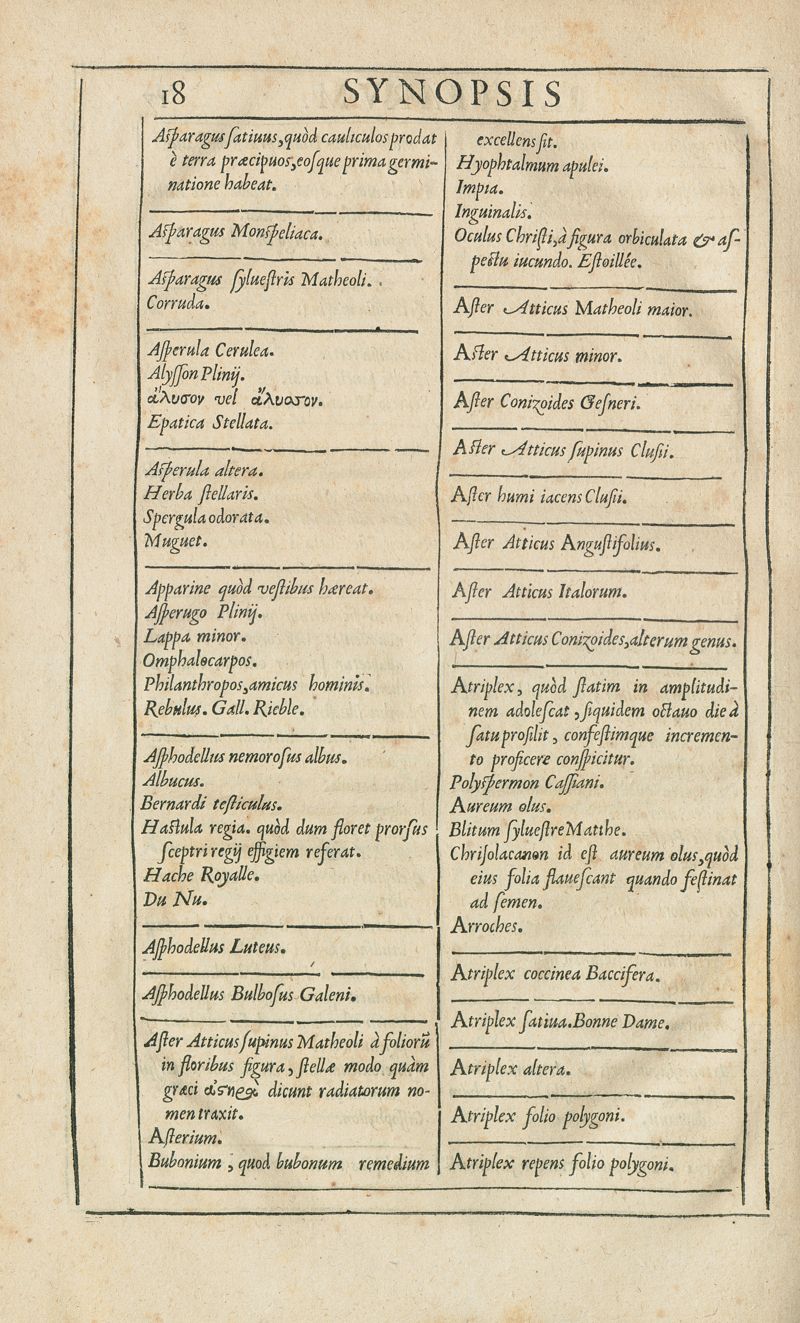 18 SYNOPSIS
Aſparagus ſatiuus, quòd cauliculos prodat
è terra præcipuos, eoſque prima germi-
natione habeat.
Aſparagus Monſpeliaca.
Aſparagus ſylueſtris Matheoli.
Corruda.
Aſperula Cerulea.
Alyſſon Plinij.
ἄλυσον vel ἄλυσσον.
Epatica Stellata.
Aſperula altera.
Herba ſtellaris.
Spergula odorata.
Muguet.
Apparine quòd veſtibus hæreat.
Aſperugo Plinij.
Lappa minor.
Omphalocarpos.
Philanthropos, amicus hominis.
Rebulus. Gall. Rieble.
Aſphodellus nemoroſus albus.
Albucus.
Bernardi teſticulus.
Haſtula regia. quòd dum floret prorſus
ſceptri regij effigiem referat.
Hache Royalle.
Du Nu.
Aſphodellus Luteus.
Aſphodellus Bulboſus Galeni.
Aſter Atticus ſupinus Matheoli à folioru᷈
in floribus figura, ſtellæ modo quàm
græci ἀστερὰ dicunt radiatorum no-
men traxit.
Aſterium.
Bubonium, quod bubonum remedium
excellens ſit.
Hyophtalmum apulei.
Impia.
Inguinalis.
Oculus Chriſti, à figura orbiculata & aſ-
pectu iucundo. Eſtoillée.
Aſter Atticus Matheoli maior.
Aſter Atticus minor.
Aſter Conizoides Geſneri.
Aſter Atticus ſupinus Cluſii.
Aſter humi iacens Cluſii.
Aſter Atticus Anguſtifolius.
Aſter Atticus Italorum.
Aſter Atticus Conizoides, alterum genus.
Atriplex, quòd ſtatim in amplitudi-
nem adoleſcat, ſiquidem octauo die à
ſatu proſilit, confeſtimque incremen-
to proficere conſpicitur.
Polyſpermon Caſſiani.
Aureum olus.
Blitum ſylueſtre Matthe.
Chriſolacanon id eſt aureum olus, quòd
eius folia flaueſcant quando feſtinat
ad ſemen.
Arroches.
Atriplex coccinea Baccifera.
Atriplex ſatiua. Bonne Dame.
Atriplex altera.
Atriplex folio polygoni.
Atriplex repens folio polygoni.